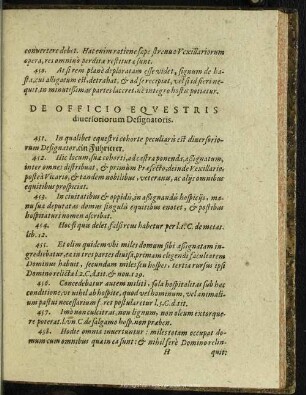 convertere debet. Hac enim ratione sæpe strenuo Vexillariorum
opera, res omnino perdita restituta sunt.
450. At si rem planè deploratam esse videt, signum de ha-
sta, cui alligatum est, detrahat, & ad se recipiat, vel si id fieri ne-
quit in minutissimas partes laceret, ne integro hostis potiatur.
DE OFFICIO EQVESTRIS
diuersoriorum Designatoris.
451. In qualibet equestri cohorte peculiaris est diuersorio-
rum Designator, ein Furierer.
452. Hic locum sua cohorti, ad castra ponenda, assignatum,
inter omnes distribuit, & primùm Præfecto, deinde Vexillario,
posteà Vicario, & tandem nobilibus, veteranis, ac alijs omnibus
equitibus prospiciat.
453. In ciuitatibus & oppidis, in assignandis hospitijs, mo-
nu sua deputatas domos singulis equitibus enotet, & postibus
hospitatus nomen ascribat.
454. Hoc si quis delet, falsi reus habetur per l. 1. C. de metat.
lib. 12.
455. Et olim quidem vbi miles domum sibi assignatam in-
grediebatur, ea in tres partes diuisa, primam eligendi facultatem
Dominus habuit, secundam miles siue hospes, tertia rursus ipsi
Domino relicta l. 2. C. d. tit. & nou. 129.
456. Concedebatur autem militi, sola hospitalitas sub hac
conditione; vt nihil ab hospite, quod vel hominum, vel animali-
um pastus necessarium f. ret postularetur l. 5. C. d. tit.
457. Imò non culcitras, non lignum, non oleum extorque-
re poterat l. vn. C. de salgamo hosp. non præben.
458. Hodie omnia inuertuntur: miles totam occupat do-
mum cum omnibus quæ in ea sunt: & nihil ferè Domino relin-
H quit;